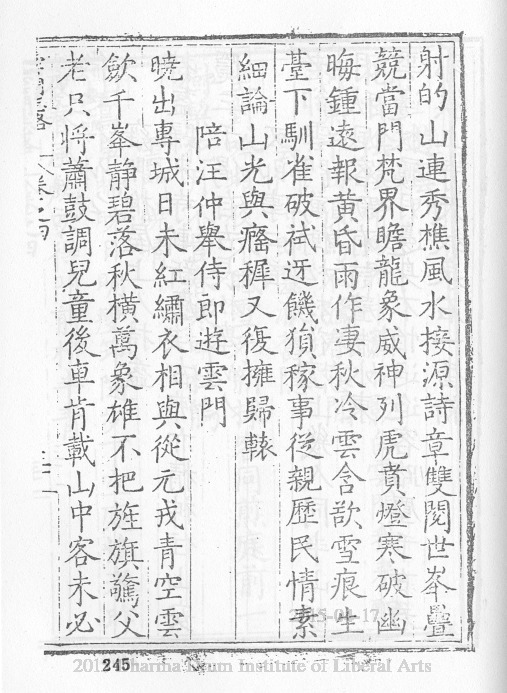 射的山連秀樵風水接源詩章雙闕世峯疊
競當門梵界瞻龍象威神列虎賁燈寒破幽
晦鍾遠報黃昏雨作凄秋冷雲含歆雪痕生
臺下馴雀破祛迓饑狷稼事從親歷民情素
細論山光與癃穉又復擁歸轅
陪汪仲舉侍即遊雲門
曉出專城日未紅繡衣相與從元戎青空雲
歛千峯静碧落秋橫萬象雄不把旌旗驚父
老只將蕭鼓調兒童後車肯載山中客未必
卷之四
二十一
245
2015-04-17
2015 Dharma Drum Institute of Liberal Arts